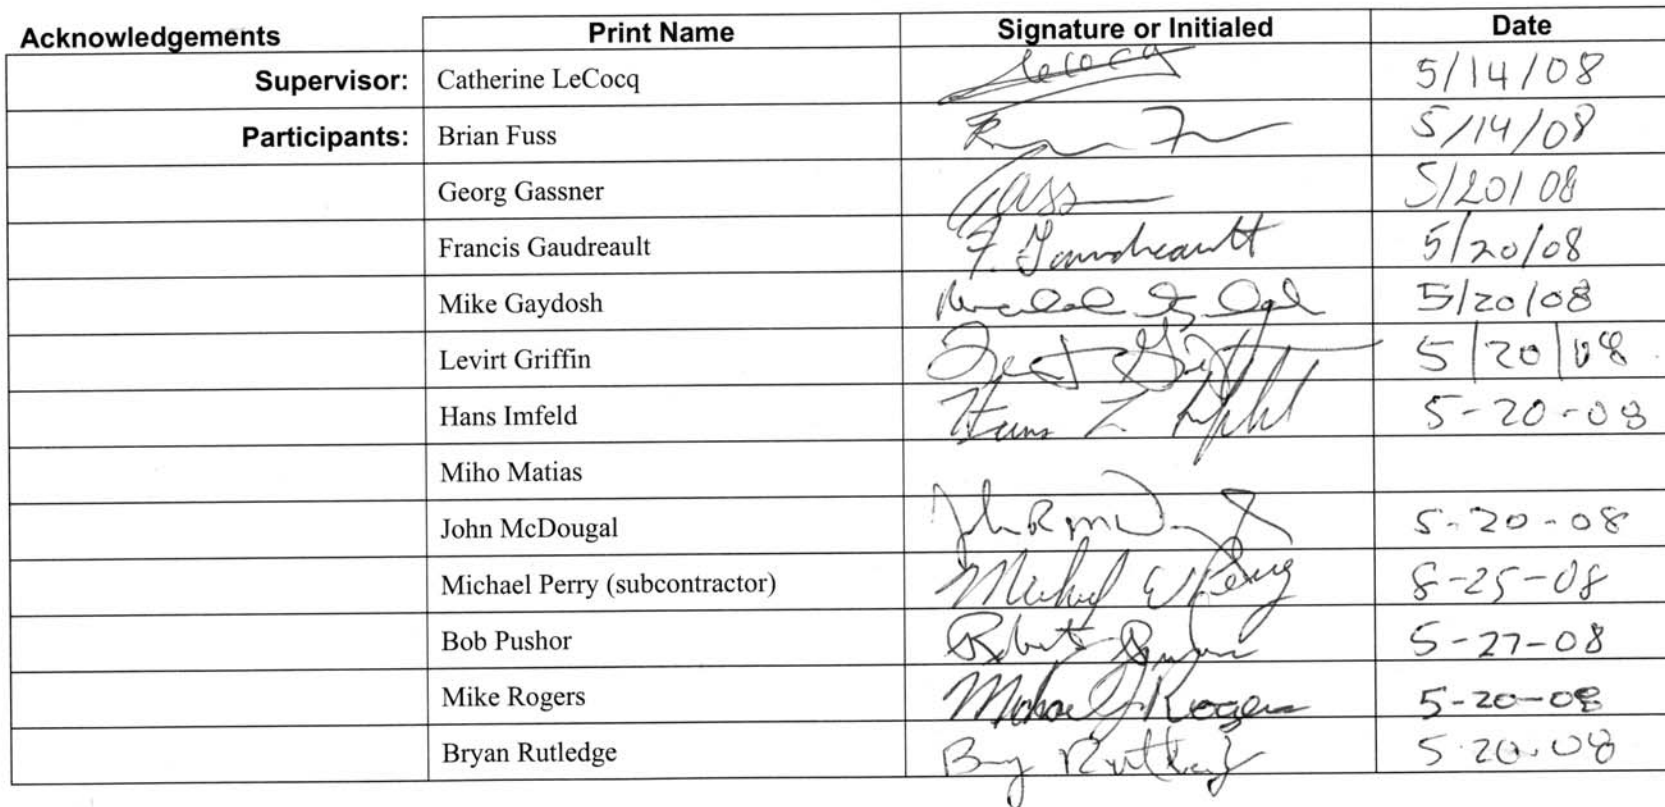 Acknowledgements Print Name Signature or Initialed Date
Supervisor: Catherine LeCocq Lecocq 5/14/08
Participants: Brian Fuss 5/14/08
Georg Gassner Gass 5/20/08
Francis Gaudreault F. Gaudreault 5/20/08
Mike Gaydosh 5/20/08
Levirt Griffin 5/20/08
Hans Imfeld Hans 5-20-08
Miho Matias
John McDougal John R McD 5-20-08
Michael Perry (subcontractor) Michael W Perry 8-25-08
Bob Pushor Robert 5-27-08
Mike Rogers Michael J Rogers 5-20-08
Bryan Rutledge 5.20.08